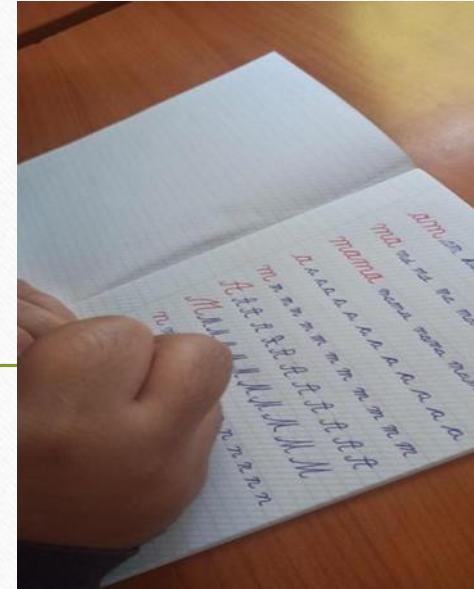 am am
ma ma ma ma
mama mama mama
a a a a a a a a a a a a a
m m m m m m m m m m m
A A A A A A A A A A A
M M M M M M M M M M
n n n n n n